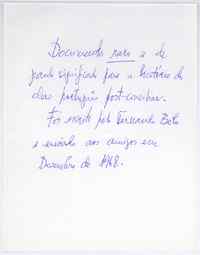 Documento raro e de
grande significado para a história do
clero português post-conciliar.
Foi escrito por Fernando Belo
e enviado aos amigos em
Dezembro de 1968.